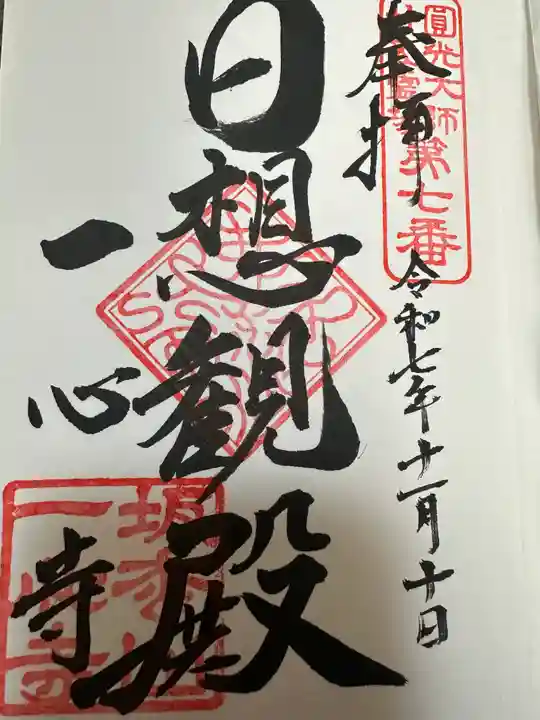 奉拝
圓光大師第七番
令和七年十一月十日
日想観殿
一心寺